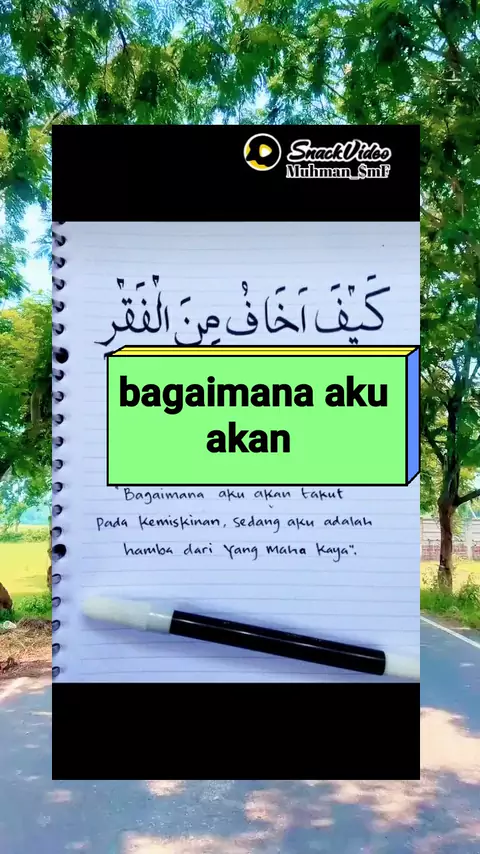 SnackVideo
Muhman_$mF
كَيْفَ اَخَافُ مِنَ الْفَقْرِ
bagaimana aku
akan
"Bagaimana aku akan takut
pada kemiskinan, sedang aku adalah
hamba dari Yang Maha Kaya".